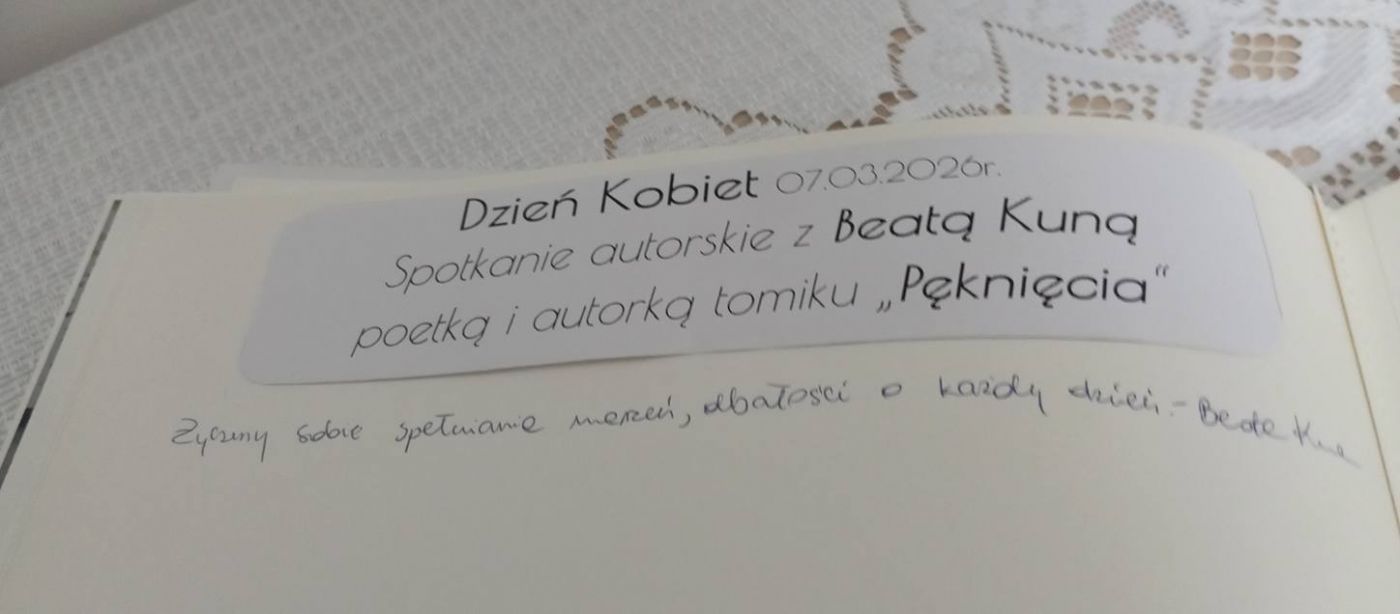 Dzień Kobiet 07.03.2026r.
Spotkanie autorskie z Beatą Kuną
poetką i autorką tomiku „Pęknięcia”
Życzmy sobie spełniania marzeń, dbałości o każdy dzień. - Beata Kuna